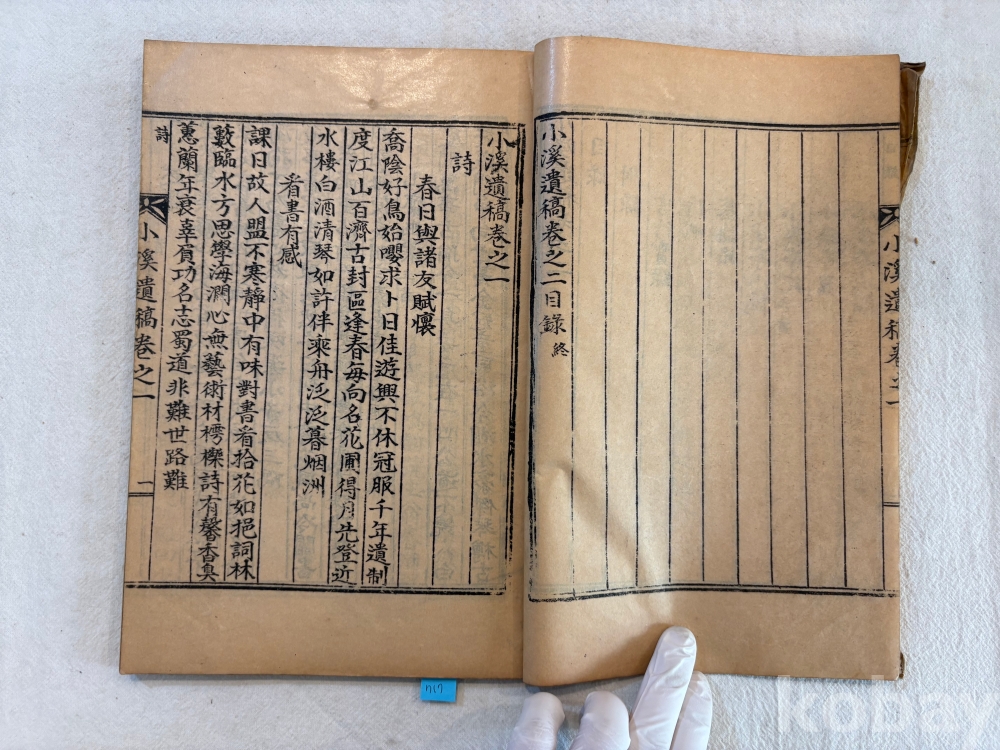 小溪遺稿卷之一
小溪遺稿卷之二目錄 終
小溪遺稿卷之一
詩
春日與諸友賦懷
喬陰好鳥始嚶求卜日佳遊興不休冠服千年遺制
度江山百濟古封區逢春每向名花圃得月先登近
水樓白酒清琴如許伴乘舟泛泛暮烟洲
看書有感
課日故人盟不寒靜中有味對書看拾花如挹詞林
藪臨水方思學海濶心無藝術材樗櫟詩有馨香臭
蕙蘭年衰辜負功名志蜀道非難世路難
詩
小溪遺稿卷之一
一
717
kobay